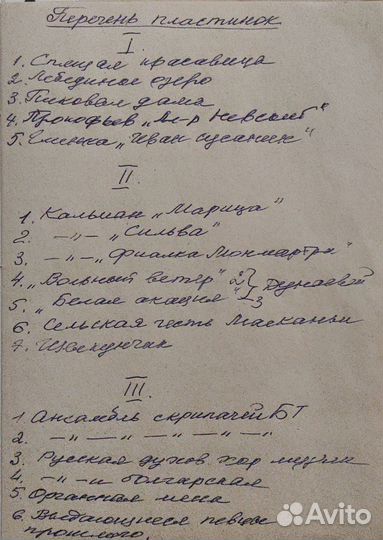 Перечень пластинок
I
1. Спящая красавица
2. Лебединое озеро
3. Пиковая дама
4. Прокофьев „Ал-р Невский"
5. Глинка „Иван Сусанин"
II
1. Кальман „Марица"
2. —"— „Сильва"
3. —"— „Фиалка Монмартра"
4. „Вольный ветер" Дунаевский
5. „Белая акация"
6. Сельская честь Масканьи
7.
III
1 Ансамбль скрипачей БТ
2. —"—"—"—"—"—
3. Русская духов. хор
4. —"— болгарская
5. Органная
6. Выдающиеся певцы
прошлого.
Avito